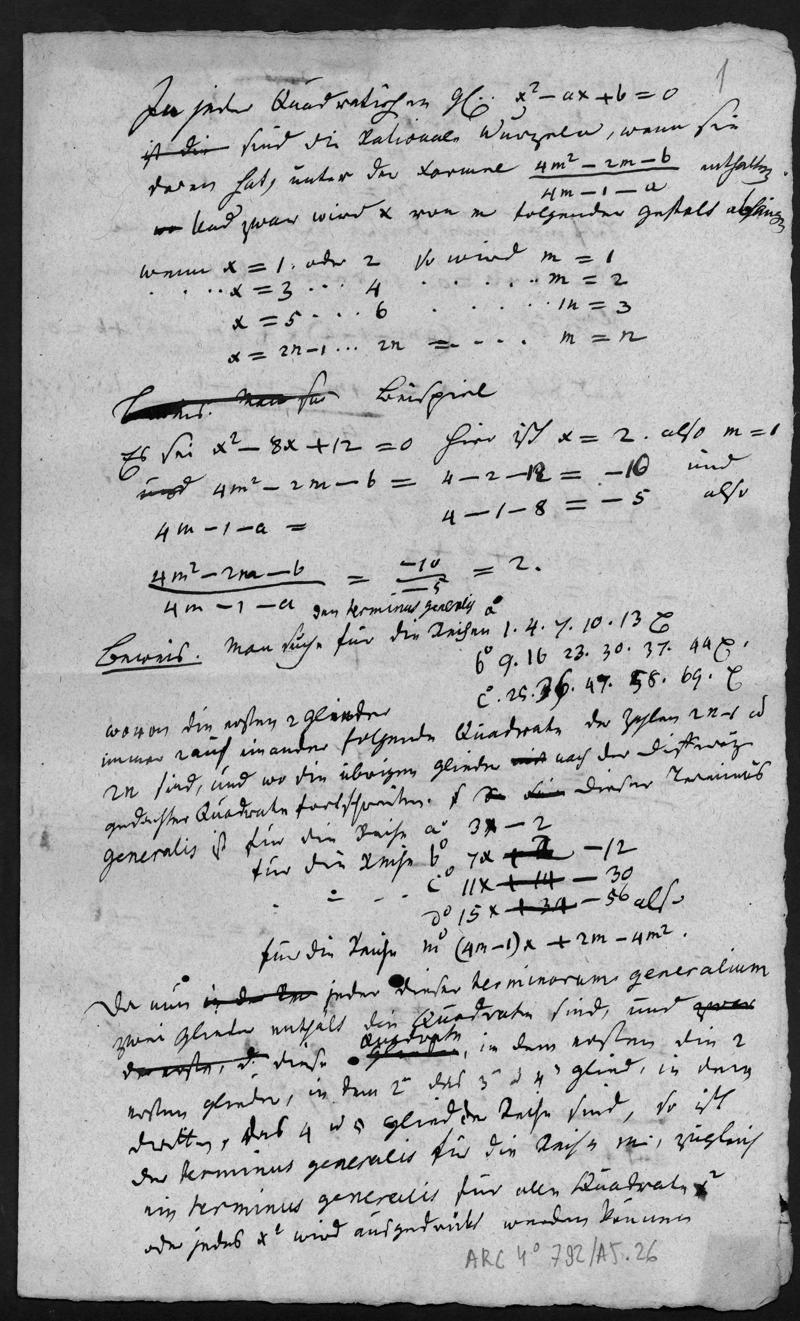 1
In jeder Quadratischen Gl. x² − ax + b = 0
ist die sind die Rationalen Wurzeln, wenn sie
deren hat, unter der Formel (4m² − 2m − b)/(4m − 1 − a) enthalten.
Und zwar wird x von m folgender gestalt abhängen
wenn x = 1. oder 2 so wird m = 1
. . . . x = 3 . . . 4 . . . . . . m = 2
x = 5 . . . 6 . . . . m = 3
x = 2n−1 . . . 2n = . . . . m = n
Beweis. Man Beispiel
Es sei x² − 8x + 12 = 0 hier ist x = 2. also m = 1
und 4m² − 2m − b = 4 − 2 − 12 = −10 und
4m − 1 − a = 4 − 1 − 8 = − 5 also
(4m² − 2m − b)/(4m − 1 − a) = −10/−5 = 2.
den terminus generalis
Beweis. Man suche für die Reihen a° 1. 4. 7. 10. 13
b° 9. 16 23. 30. 37. 44
c°. 25. 36. 47. 58. 69.
wovon die ersten 2 glieder
immer 2 auf einander folgende Quadrate der Zahlen 2n−1 u
2n sind, und wo die übrigen glieder mit nach der Differenz
gedachter Quadrate fortschreiten. dieser Terminus
generalis ist für die Reihe a° 3x − 2
für die Reihe b° 7x − 12
c° 11x + 14 − 30
d° 15x + 34 − 56 also
für die Reihe m° (4m−1)x + 2m − 4m².
Da nun in der jeder dieser terminorum generalium
zwei glieder enthält die Quadrate sind, und zwar
der erste, diese Quadrate, in dem ersten die 2
ersten glieder, in dem 2 das 3 u 4 glied, in dem
dritten, das 4 u 5 glied der Reihe sind, so ist
der terminus generalis für die Reihe m, zugleich
ein terminus generalis für alle Quadrate x²
oder jedes x² wird ausgedrückt werden können
ARC 4° 792/A5.26